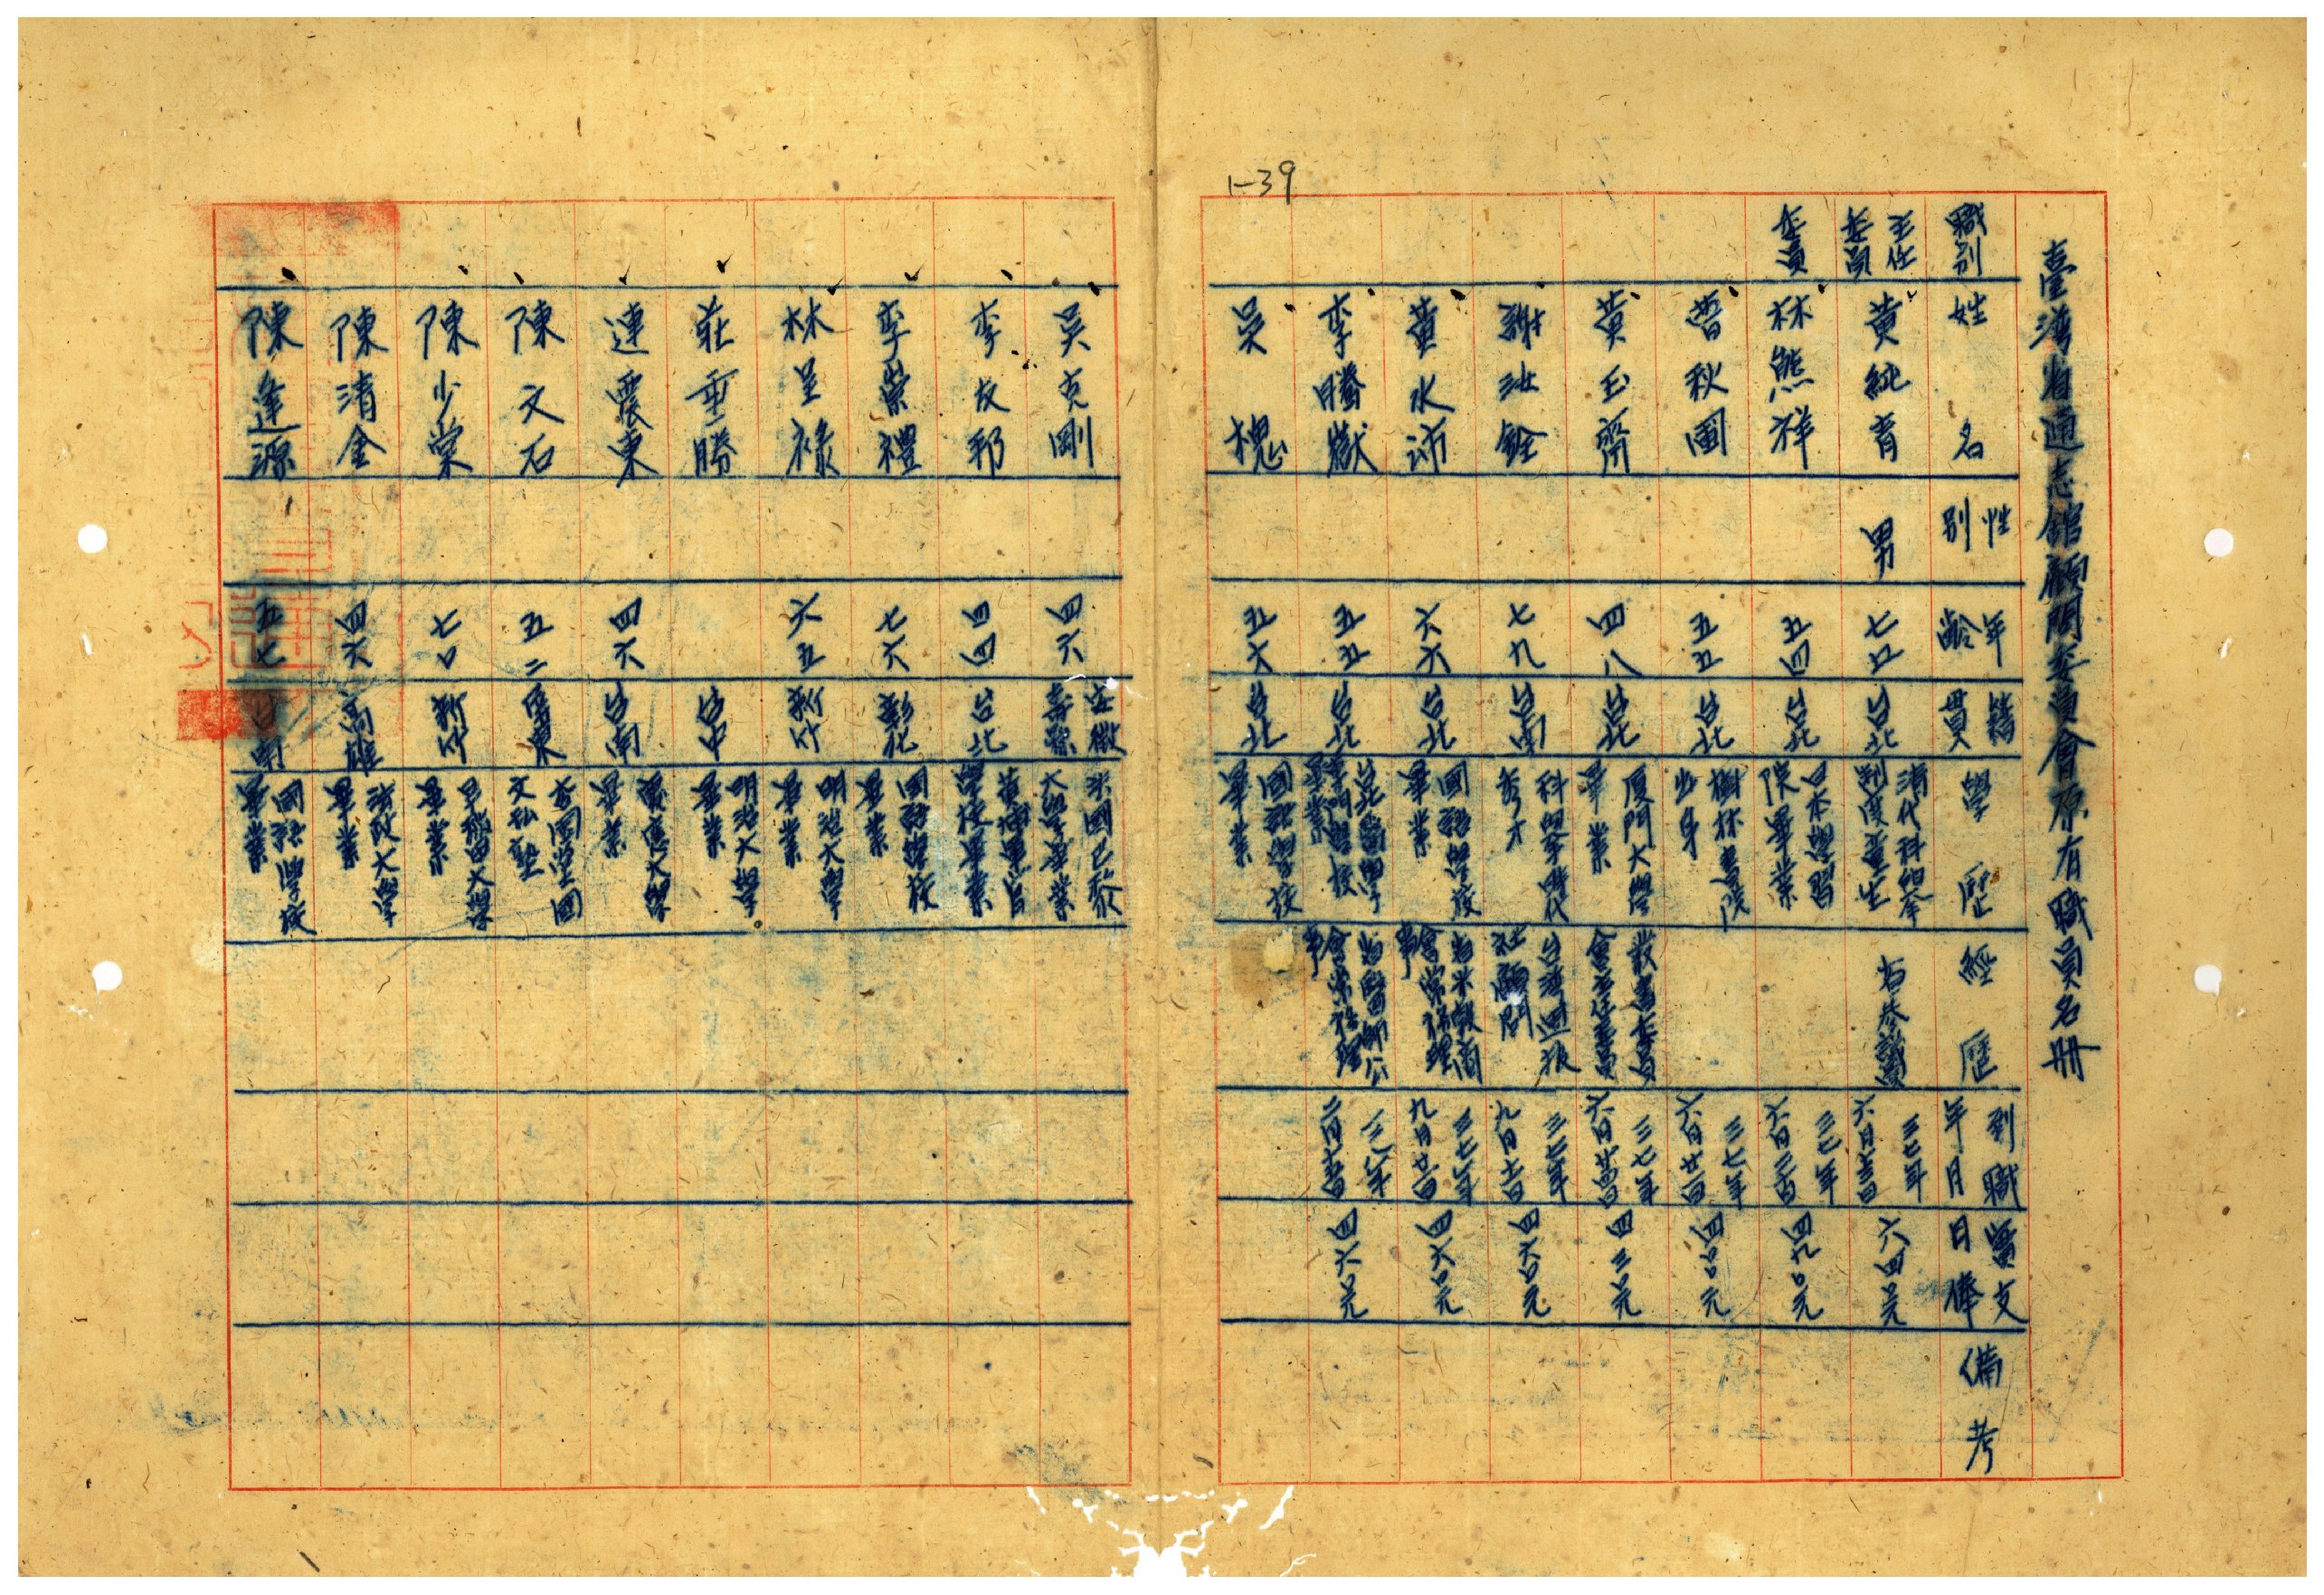 1-39
臺灣省通志館顧問委員會原有職員名冊
職別 姓名 性別 年齡 籍貫 學歷 經歷 到職年月日 實支俸 備考
主任委員 黃純青 男 台北 清代科舉制度童生 省參議員 三七年六月 六四〇元
委員 林熊祥 五四 台北 日本學習院畢業 三七年六月 四九〇元
曾秋圃 五五 台北 樹林書院出身 三七年六月 四〇〇元
黃玉齋 四八 台北 厦門大學畢業 叢書委員會主任委員 三七年六月 四三〇元
謝汝銓 七九 台南 科舉時代秀才 台灣週報社顧問 三七年九月 四六〇元
黃水沛 六六 台北 國語學校畢業 省米穀商會常務理事 三七年九月 四六〇元
李騰嶽 五五 台北 台北醫學專門學校畢業 省醫師公會常務理事 三八年二月 四六〇元
吳槐 五六 台北 國語學校畢業
吳克剛 四六 安徽壽縣 法國巴黎大學畢業
李友邦 四四 台北 黃埔軍官學校畢業
李崇禮 七六 彰化 國語學校畢業
林呈祿 六五 新竹 明治大學畢業
莊垂勝 台中 明治大學畢業
連震東 四六 台南 慶應大學畢業
陳文石 五二 屏東 文私塾
陳少棠 七〇 新竹 早稻田大學畢業
陳清金 四六 高雄 法政大學畢業
陳逢源 五七 台南 國語學校畢業